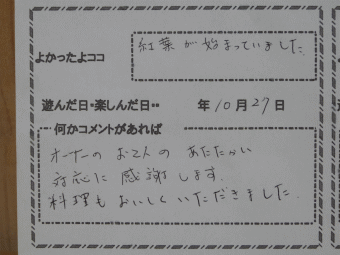 紅葉が始まっていました。
よかったよココ
遊んだ日・楽しんだ日・・ 年10月27日
何かコメントがあれば
オーナーのお2人のあたたかい
対応に感謝します。
料理もおいしくいただきました。